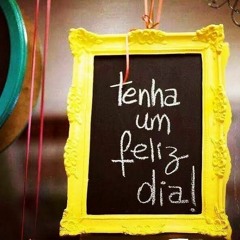 tenha
um
feliz
dia!